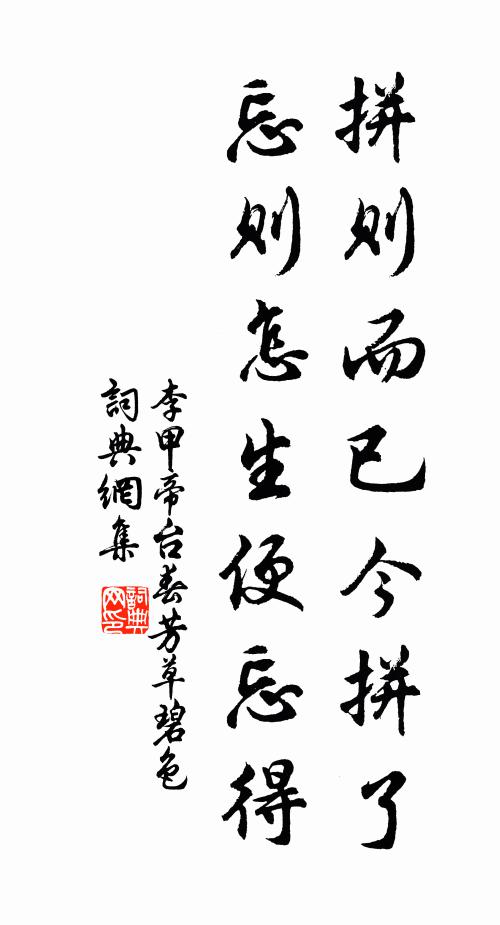 拼则而已今拼了
忘则怎生便忘得
李甲帝台春芳草碧色
詞典網集
詞典
网印